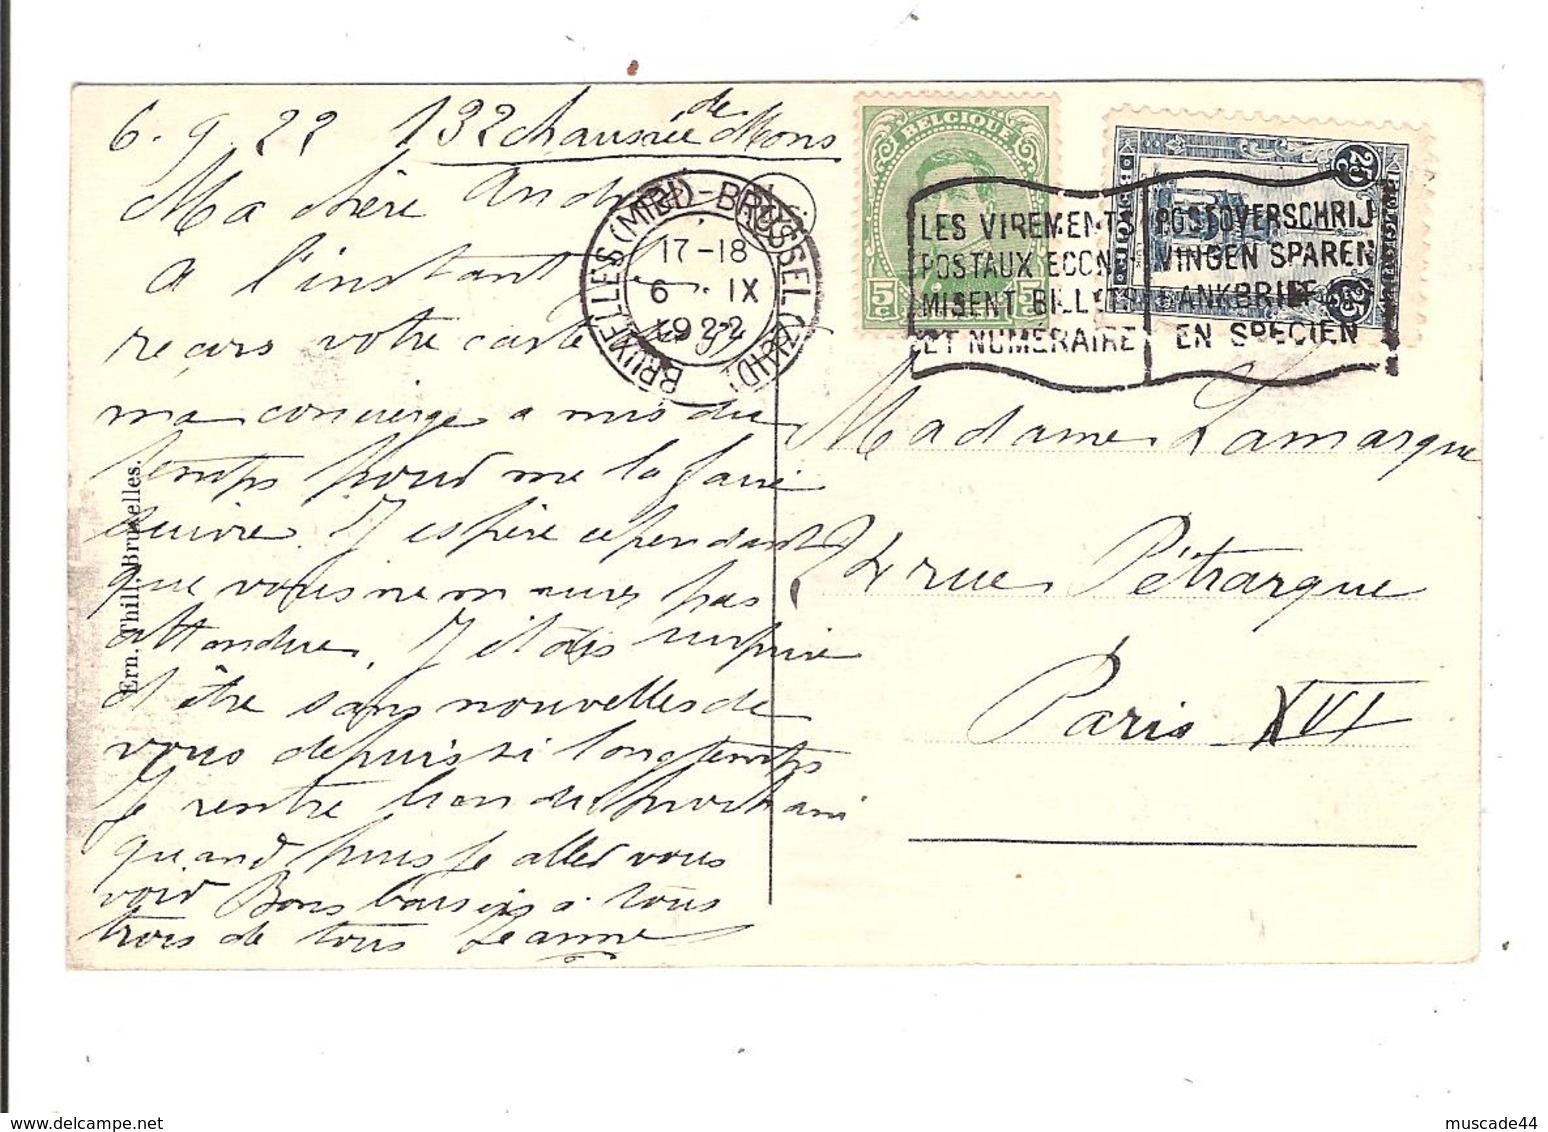 6. 9. 22 132 chaussée de Mons
Ma chère
A l'instant je
reçois votre carte
ma concierge a mis du
temps pour me la faire
suivre. J espère cependant
que vous ne m aurez pas
attendue. J étais surprise
d'être sans nouvelles de
vous depuis si longtemps
Je rentre
quand puis je aller vous
voir Bons baisers à tous
trois de tous Jeanne
Ern. Thill, Bruxelles.
BRUXELLES (MIDI) - BRUSSEL (ZUID)
17-18
6 IX
1922
BELGIQUE
5c 5c
25c
LES VIREMENTS
POSTAUX ECONO
MISENT BILLETS
ET NUMÉRAIRE
POSTOVERSCHRIJ
VINGEN SPAREN
BANKBRIEF
EN SPECIEN
Madame Lamarque
24 rue Pétrarque
Paris XVI
muscade44